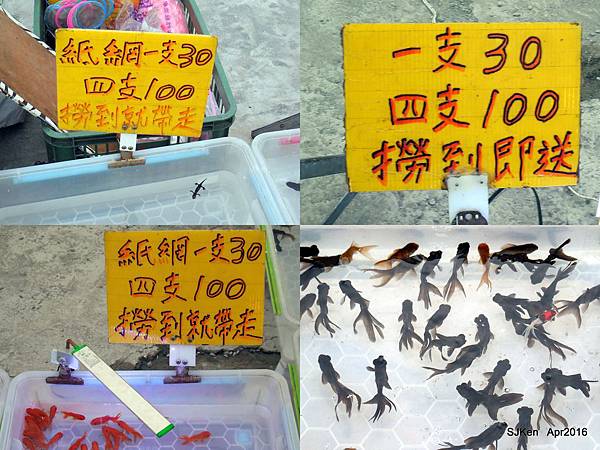 紙網一支30
四支100
撈到就帶走
一支30
四支100
撈到即送
紙網一支30
四支100
撈到就帶走
SJKen Apr2016